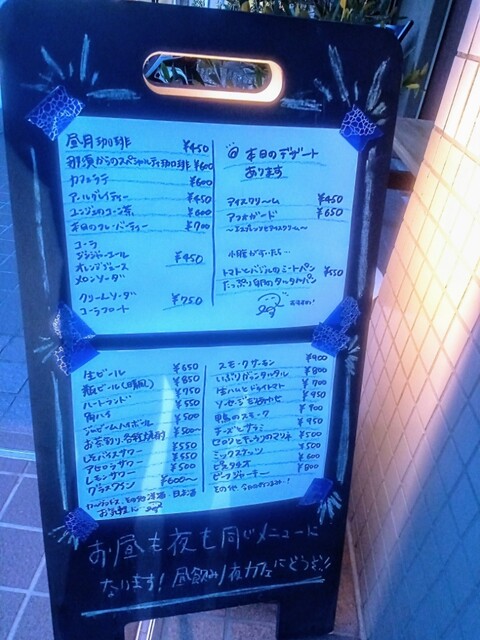 昼月珈琲 ¥450
那須からのスペシャルティ珈琲 ¥600
カフェラテ ¥600
アールグレイティー ¥450
¥600
本日のフレーバーティー ¥700
コーラ
ジンジャーエール ¥450
オレンジジュース
メロンソーダ
クリームソーダ ¥750
コーラフロート
本日のデザート
あります
アイスクリーム ¥450
アフォガード ¥650
〜エスプレッソとアイスクリーム〜
小腹がすいたら…
トマトとバジルのミートパン ¥550
たっぷり卵のタルタルパン
おすすめ!
生ビール ¥650
瓶ビール(晴風) ¥850
ハートランド ¥750
角ハイ ¥550
ジムビームハイボール ¥500
お茶割り、各種焼酎 ¥500〜
しそパイスサワー ¥550
アセロラサワー ¥550
レモンサワー ¥500
グラスワイン ¥600〜
その他 洋酒・日本酒
スモークサーモン ¥900
いぶりがっこタルタル ¥800
生ハムとドライトマト ¥700
ソーセージ盛り合わせ ¥950
鴨のスモーク ¥900
チーズとサラミ ¥950
セロリとキュウリのマリネ ¥500
ミックスナッツ ¥500
ピスタチオ ¥600
ビーフジャーキー ¥800
お昼も夜も同じメニューに
なります!昼飲み/夜カフェにどうぞ!!